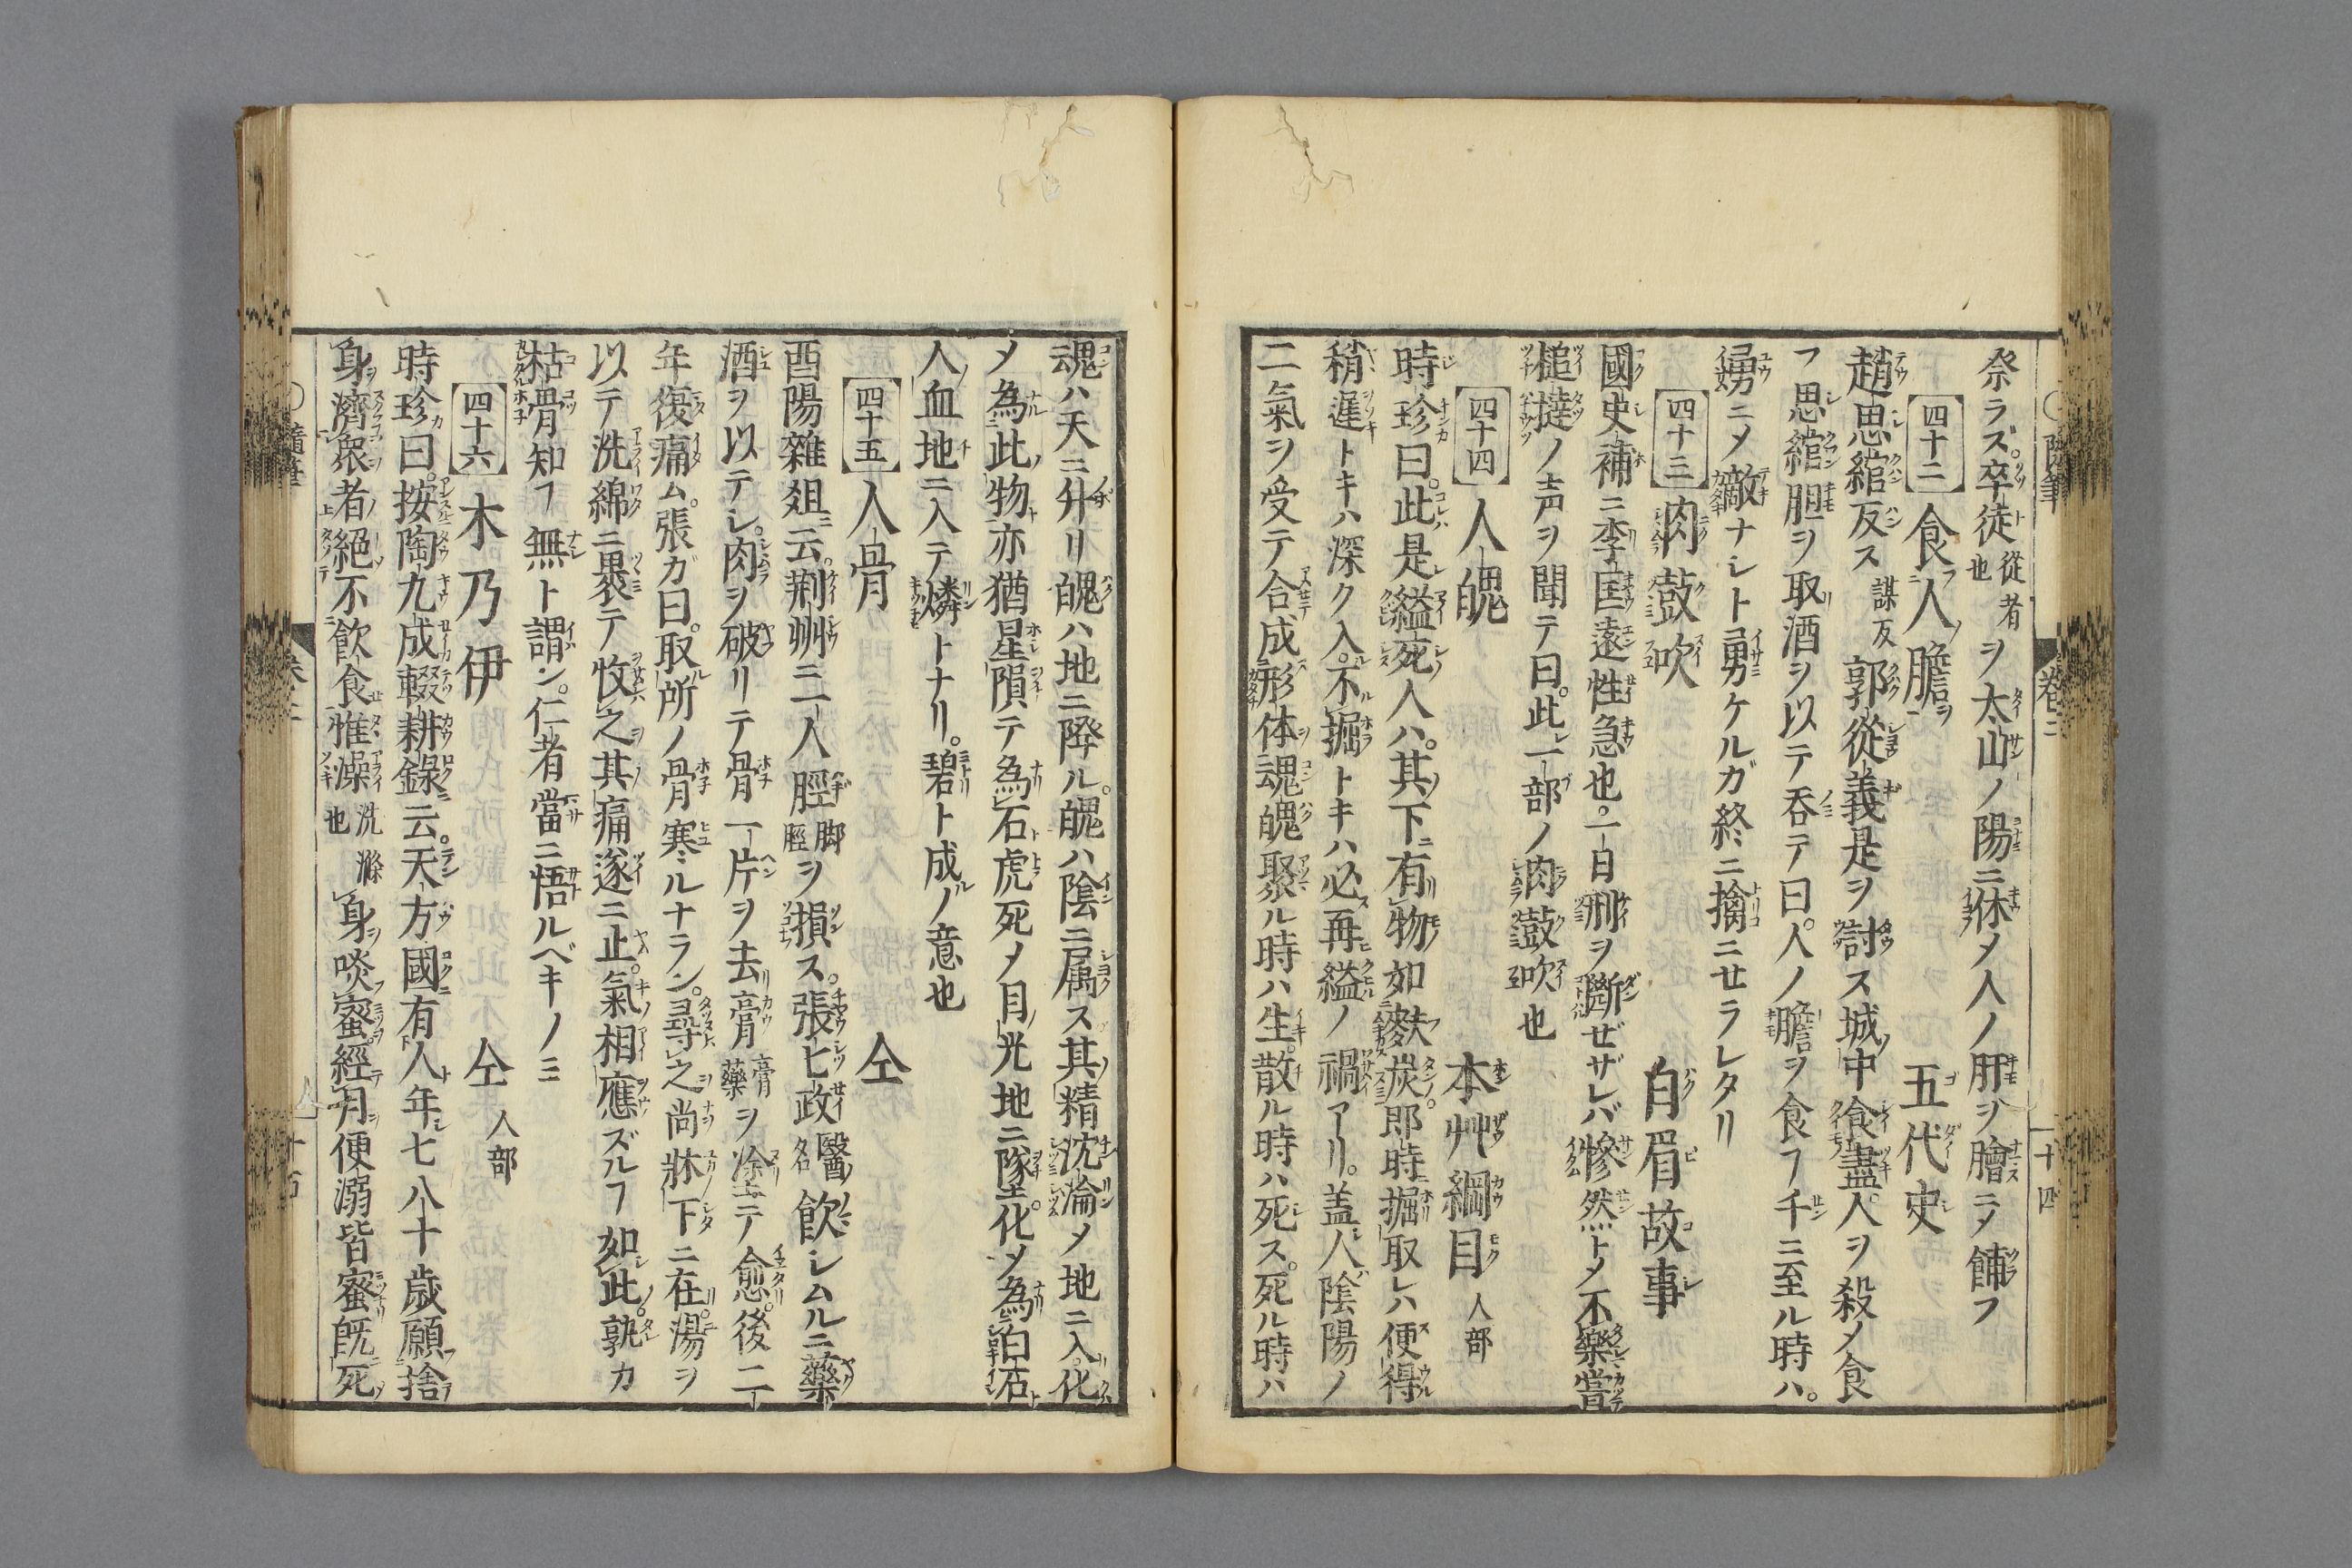 祭ラズ卒徒従者也ヲ太山ノ陽ニ休メ人ノ肝ヲ膾ニメ餔フ
四十二 食人膽ヲ 五代史
趙思綰反ス謀反郭從義是ヲ討ス城中食盡人ヲ殺メ食
フ思綰胆ヲ取リ酒ヲ以テ呑テ曰人ノ膽ヲ食フ千ニ至ル時ハ
勇ニメ敵ナシト勇ケルガ終ニ擒ニセラレタリ
四十三 肉鼓吹 白眉故事
國史補ニ李匡遠性急也一日刑ヲ斷ゼザレバ慘然トメ不樂甞
槌撻ノ声ヲ聞テ曰此一部ノ肉鼓吹也
四十四 人魄 本艸綱目人部
時珍曰此是縊死人ハ其下ニ有物如麩炭即時掘取レハ便得
稍遅トキハ深ク入不掘トキハ必再縊ノ禍アリ蓋人陰陽ノ
二氣ヲ受テ合成形体魂魄聚ル時ハ生散ル時ハ死ス死ル時ハ
魂ハ天ニ升リ魄ハ地ニ降ル魄ハ陰ニ属ス其精沈淪メ地ニ入化
メ為此物亦猶星隕テ為石虎死メ目光地ニ墜化メ為白石
人血地ニ入テ燐トナリ碧ト成ルノ意也
四十五 人骨 仝
酉陽雜爼ニ云荆州ニ一人脛脚脛ヲ損ス張七政醫名飲シムルニ藥
酒ヲ以テシ肉ヲ破リテ骨一片ヲ去リ膏膏藥ヲ塗テ愈後二
年復痛ム張ガ曰取所ノ骨寒ルナラン尋之尚牀下ニ在湯ヲ
以テ洗綿ニ裹テ收之其痛遂ニ止氣相應ズルフ如此孰カ
枯骨知フ無ト謂ン仁者當ニ悟ルベキノミ
四十六 木乃伊 仝人部
時珍曰按陶九成輟耕錄云天方國有人年七八十歳願捨
身濟衆者絕不飲食惟澡洗滌也身啖蜜經月便溺皆蜜既死
卷三
十四